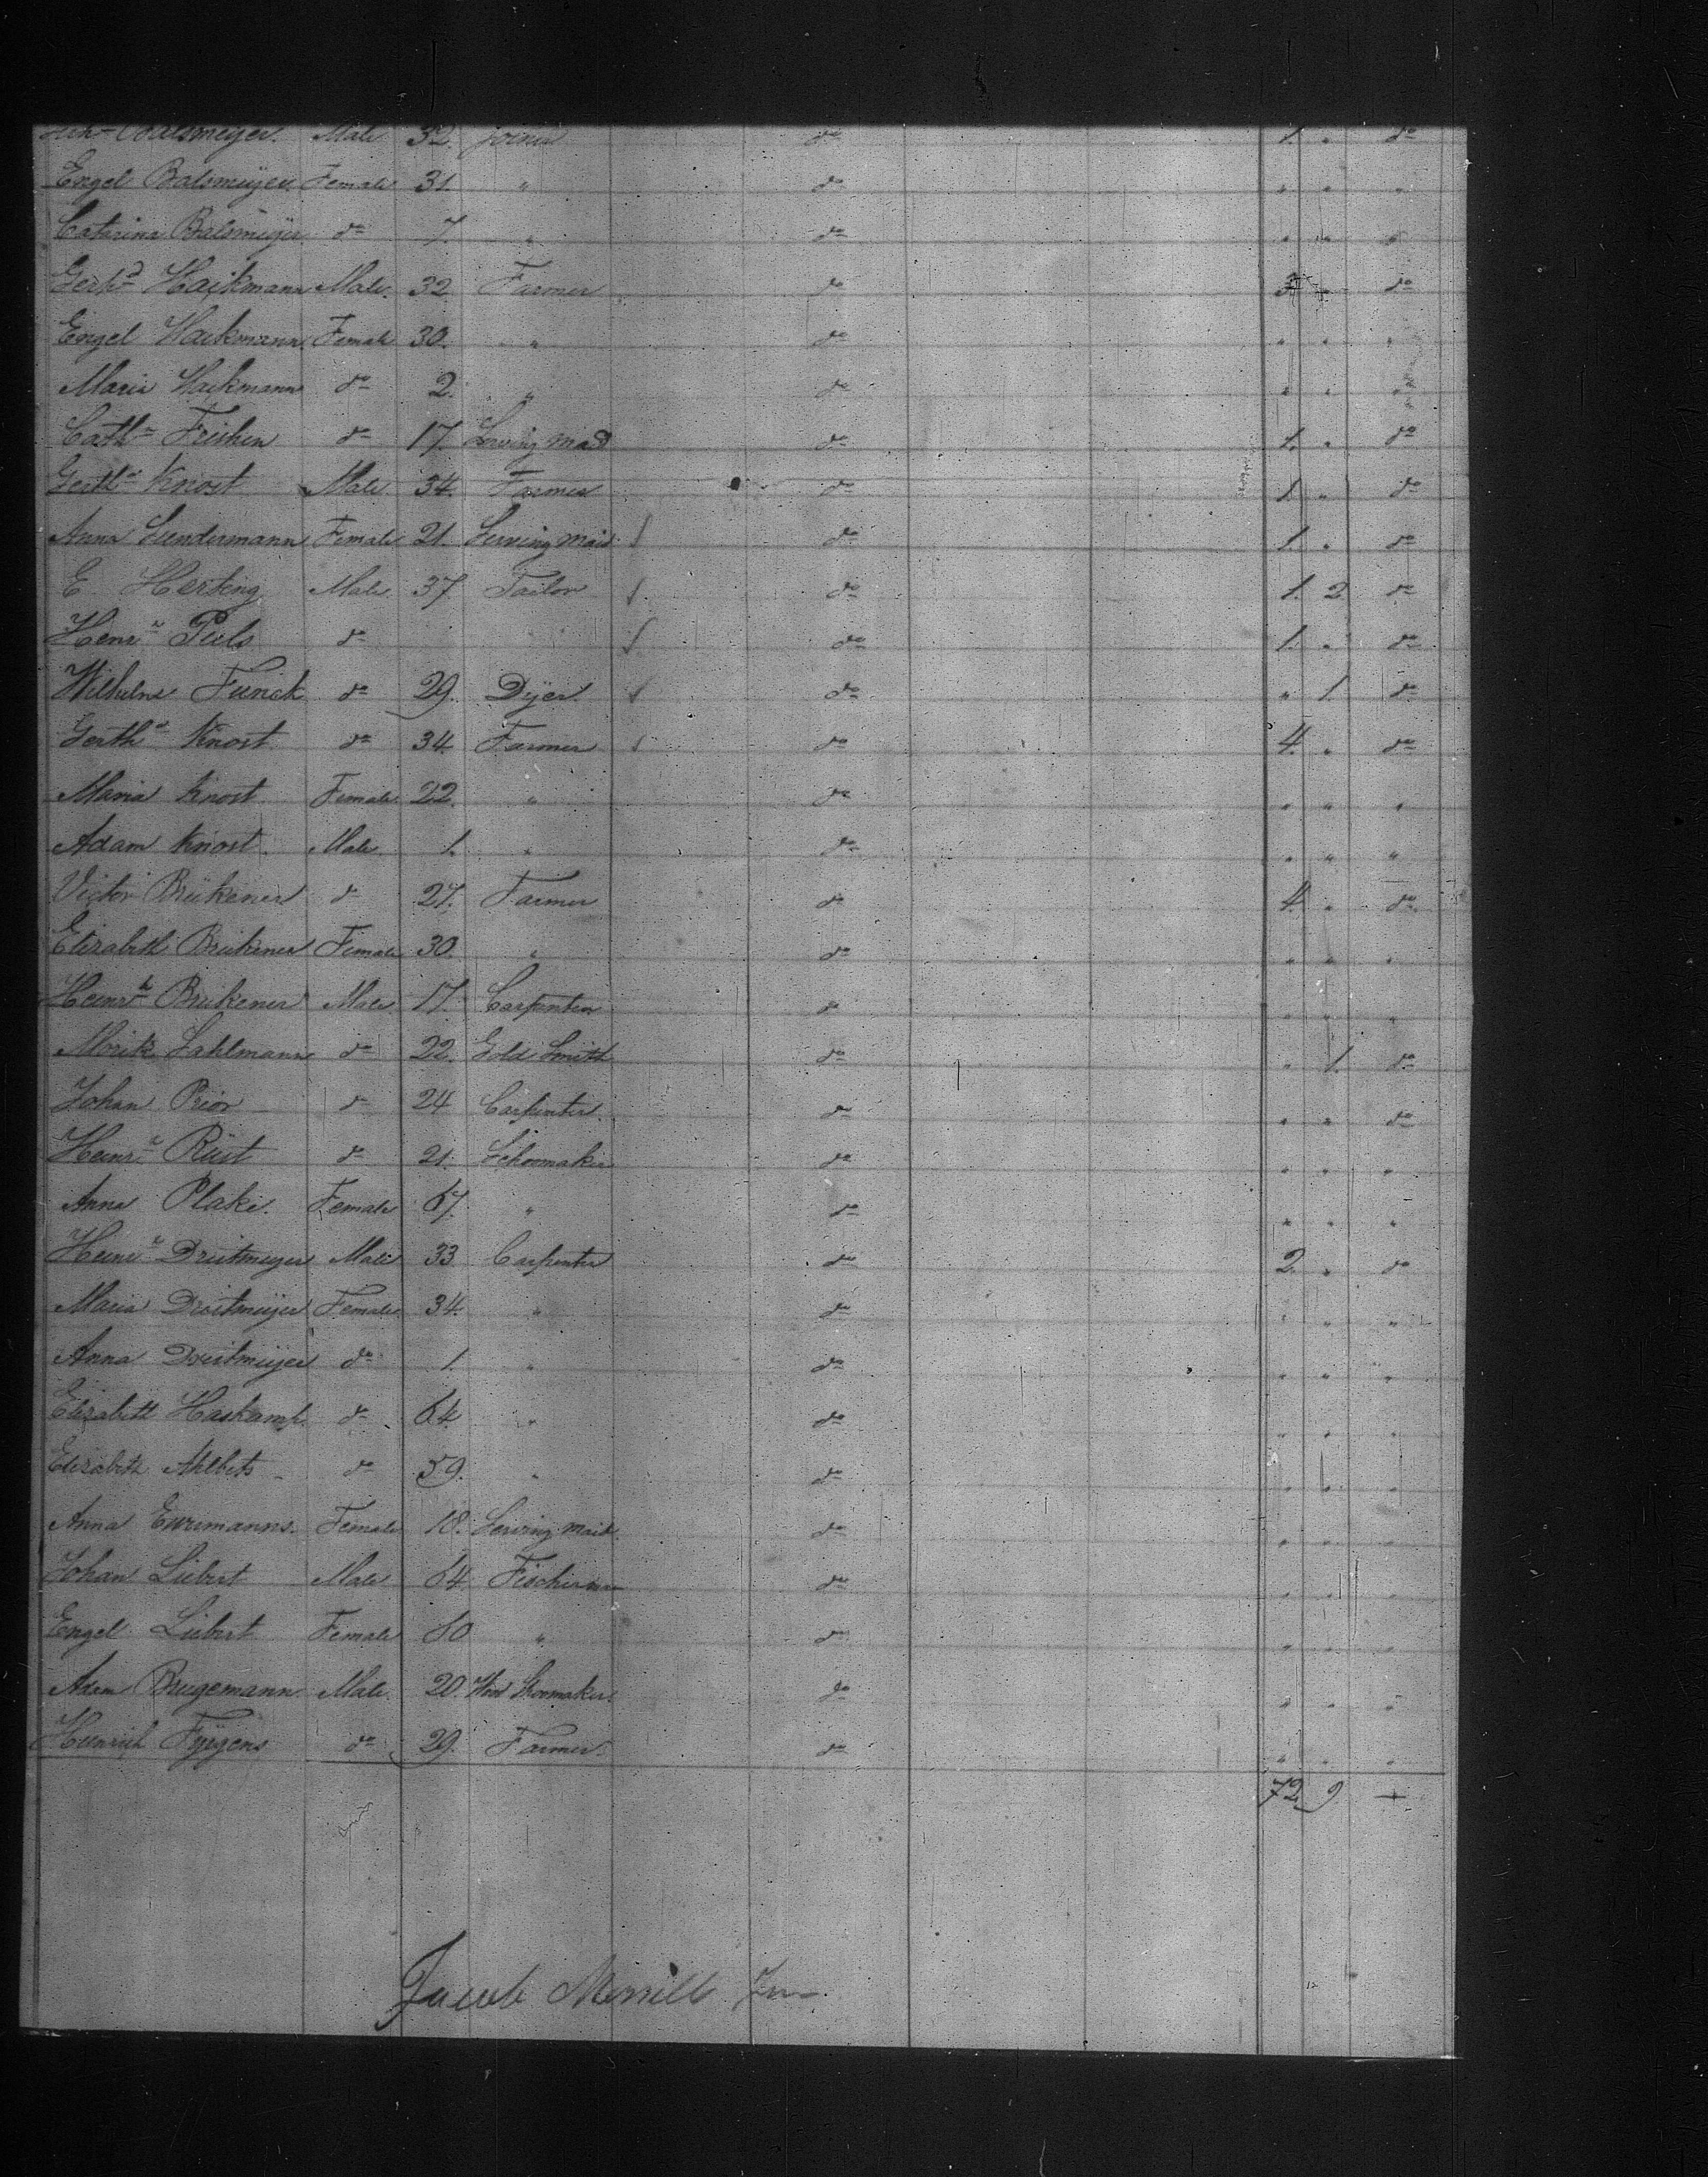 Balsmeyer. Male 32. Joiner do 1. " do
Engel Balsmeyer Female 31. " do " " "
Catarina Balsmeyer do 7. " do " " "
Gerhd Hackmann Male. 32 Farmer do 3 " do
Engel Hackmann Female 30. " do " " "
Maria Hackmann do 2. " do " " "
Cath Frishen do 17. Serving maid do 1. " do
Gerthd Knost Male 34. Farmer do 1. " do
Anna Sundermann Female 21. Serving maid do 1. " do
E. Herking Male. 37 Tailor do 1. 2 do
Henr Peels do do 1. " do
Wilhelm Funck do 29. Dyer do " 1. do
Gerthd Knost do 34 Farmer do 4. " do
Maria Knost Female 22. " do " " "
Adam Knost. Male. 1. " do " " "
Victor Brükener do 27. Farmer do 4. " do
Elizabeth Brükener Female 30. " do " " "
Heinrh Brükener Male 17. Carpenter do " " "
Morik Sahlmann do 22. Gold Smith do " 1. do
Johan Prior do 24 Carpenter. do " " do
Heinr Rüst do 21. Schoomaker do " " "
Anna Plake. Female 67. " do " " "
Heinr Dreitmeyer Male 33 Carpenter do 2. " do
Maria Dreitmeyer Female 34. " do " " "
Anna Dreitmeyer do 1. " do " " "
Elizabeth Haskamp. do 64 " do " " "
Elizabeth Ahlbets do 59. " do " " "
Anna Evermanns. Female 18. Serving maid. do " " "
Johan Liebert Male 64 Fischerman do " " "
Engel Liebert Female 60 " do " " "
Adam Brugemann Male. 20. Shoomaker. do " " "
Heinrich do 29. Farmer. do " " "
72 9
Jacob Merrill Jun